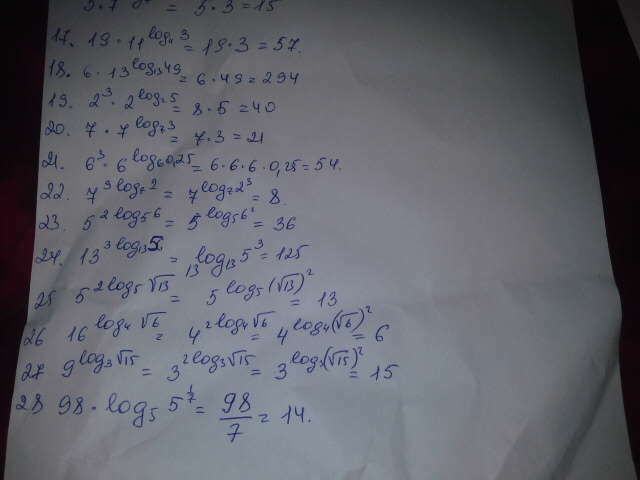 = 5·3=15
17. 19·11^{log₁₁3} = 19·3=57.
18. 6·13^{log₁₃49} = 6·49=294
19. 2³·2^{log₂5} = 8·5=40
20. 7·7^{log₇3} = 7·3=21
21. 6³·6^{log₆0,25} = 6·6·6·0,25=54.
22. 7^{3log₇2} = 7^{log₇2³} = 8.
23. 5^{2log₅6} = 5^{log₅6²} = 36
24. 13^{3log₁₃5} = 13^{log₁₃5³} = 125
25 5^{2log₅√13} = 5^{log₅(√13)²} = 13
26 16^{log₄√6} = 4^{2log₄√6} = 4^{log₄(√6)²} = 6
27 9^{log₃√15} = 3^{2log₃√15} = 3^{log₃(√15)²} = 15
28 98·log₅5^{1/7} = 98/7 = 14.